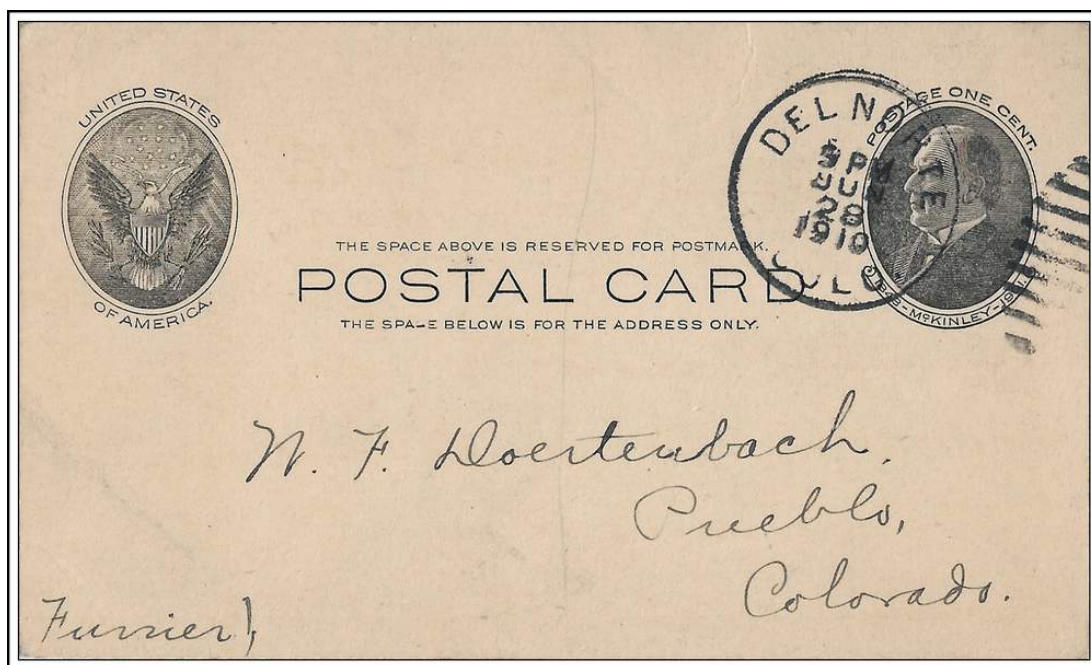 UNITED STATES
OF AMERICA.
POSTAGE ONE CENT.
McKINLEY
DEL NORTE
PM
28
1910
COLO
THE SPACE ABOVE IS RESERVED FOR POSTMARK.
POSTAL CARD
THE SPA-E BELOW IS FOR THE ADDRESS ONLY.
W. F. Doertenbach,
Pueblo,
Colorado.
Furrier,